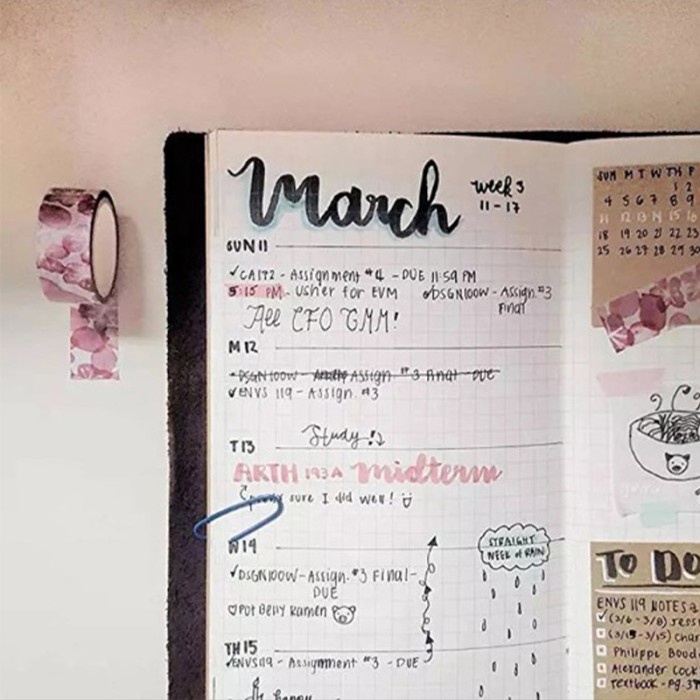 March
Week 3
11-17
SUN 11
✓CA172 - Assignment #4 - DUE 11:59 PM
5:15 PM - Usher for EVM
✓DSGN100W - Assign. #3
Final
All CFO GMM!
M12
DSGN 100W - Assign #3 Final - DUE
✓ENVS 119 - Assign. #3
T13
Study!
ARTH 193A midterm
sure I did well!
W14
✓DSGN100W - Assign. #3 Final -
DUE
Pot Belly Ramen
STRAIGHT
WEEK of RAIN
TH 15
✓ENVS119 - Assignment #3 - DUE
SUN M T W TH F
1 2
4 5 6 7 8 9
11 12 13 14 15 16
18 19 20 21 22 23
25 26 27 28 29 30
TO DO
ENVS 119 NOTES
(3/6 - 3/8)
(3/13 - 3/15)
Philippe
Alexander
Textbook - pg.